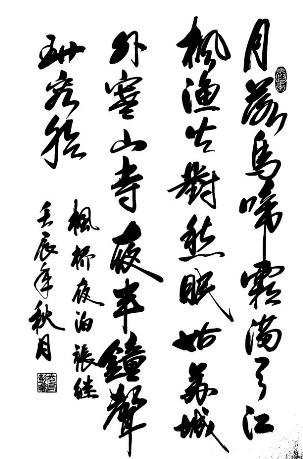 月落烏啼霜滿天江
楓漁火對愁眠姑蘇城
外寒山寺夜半鐘聲
到客船
楓橋夜泊張継
壬辰年秋月